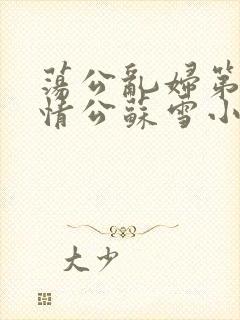 蕩公亂婦第
情公蘇雪小
大少